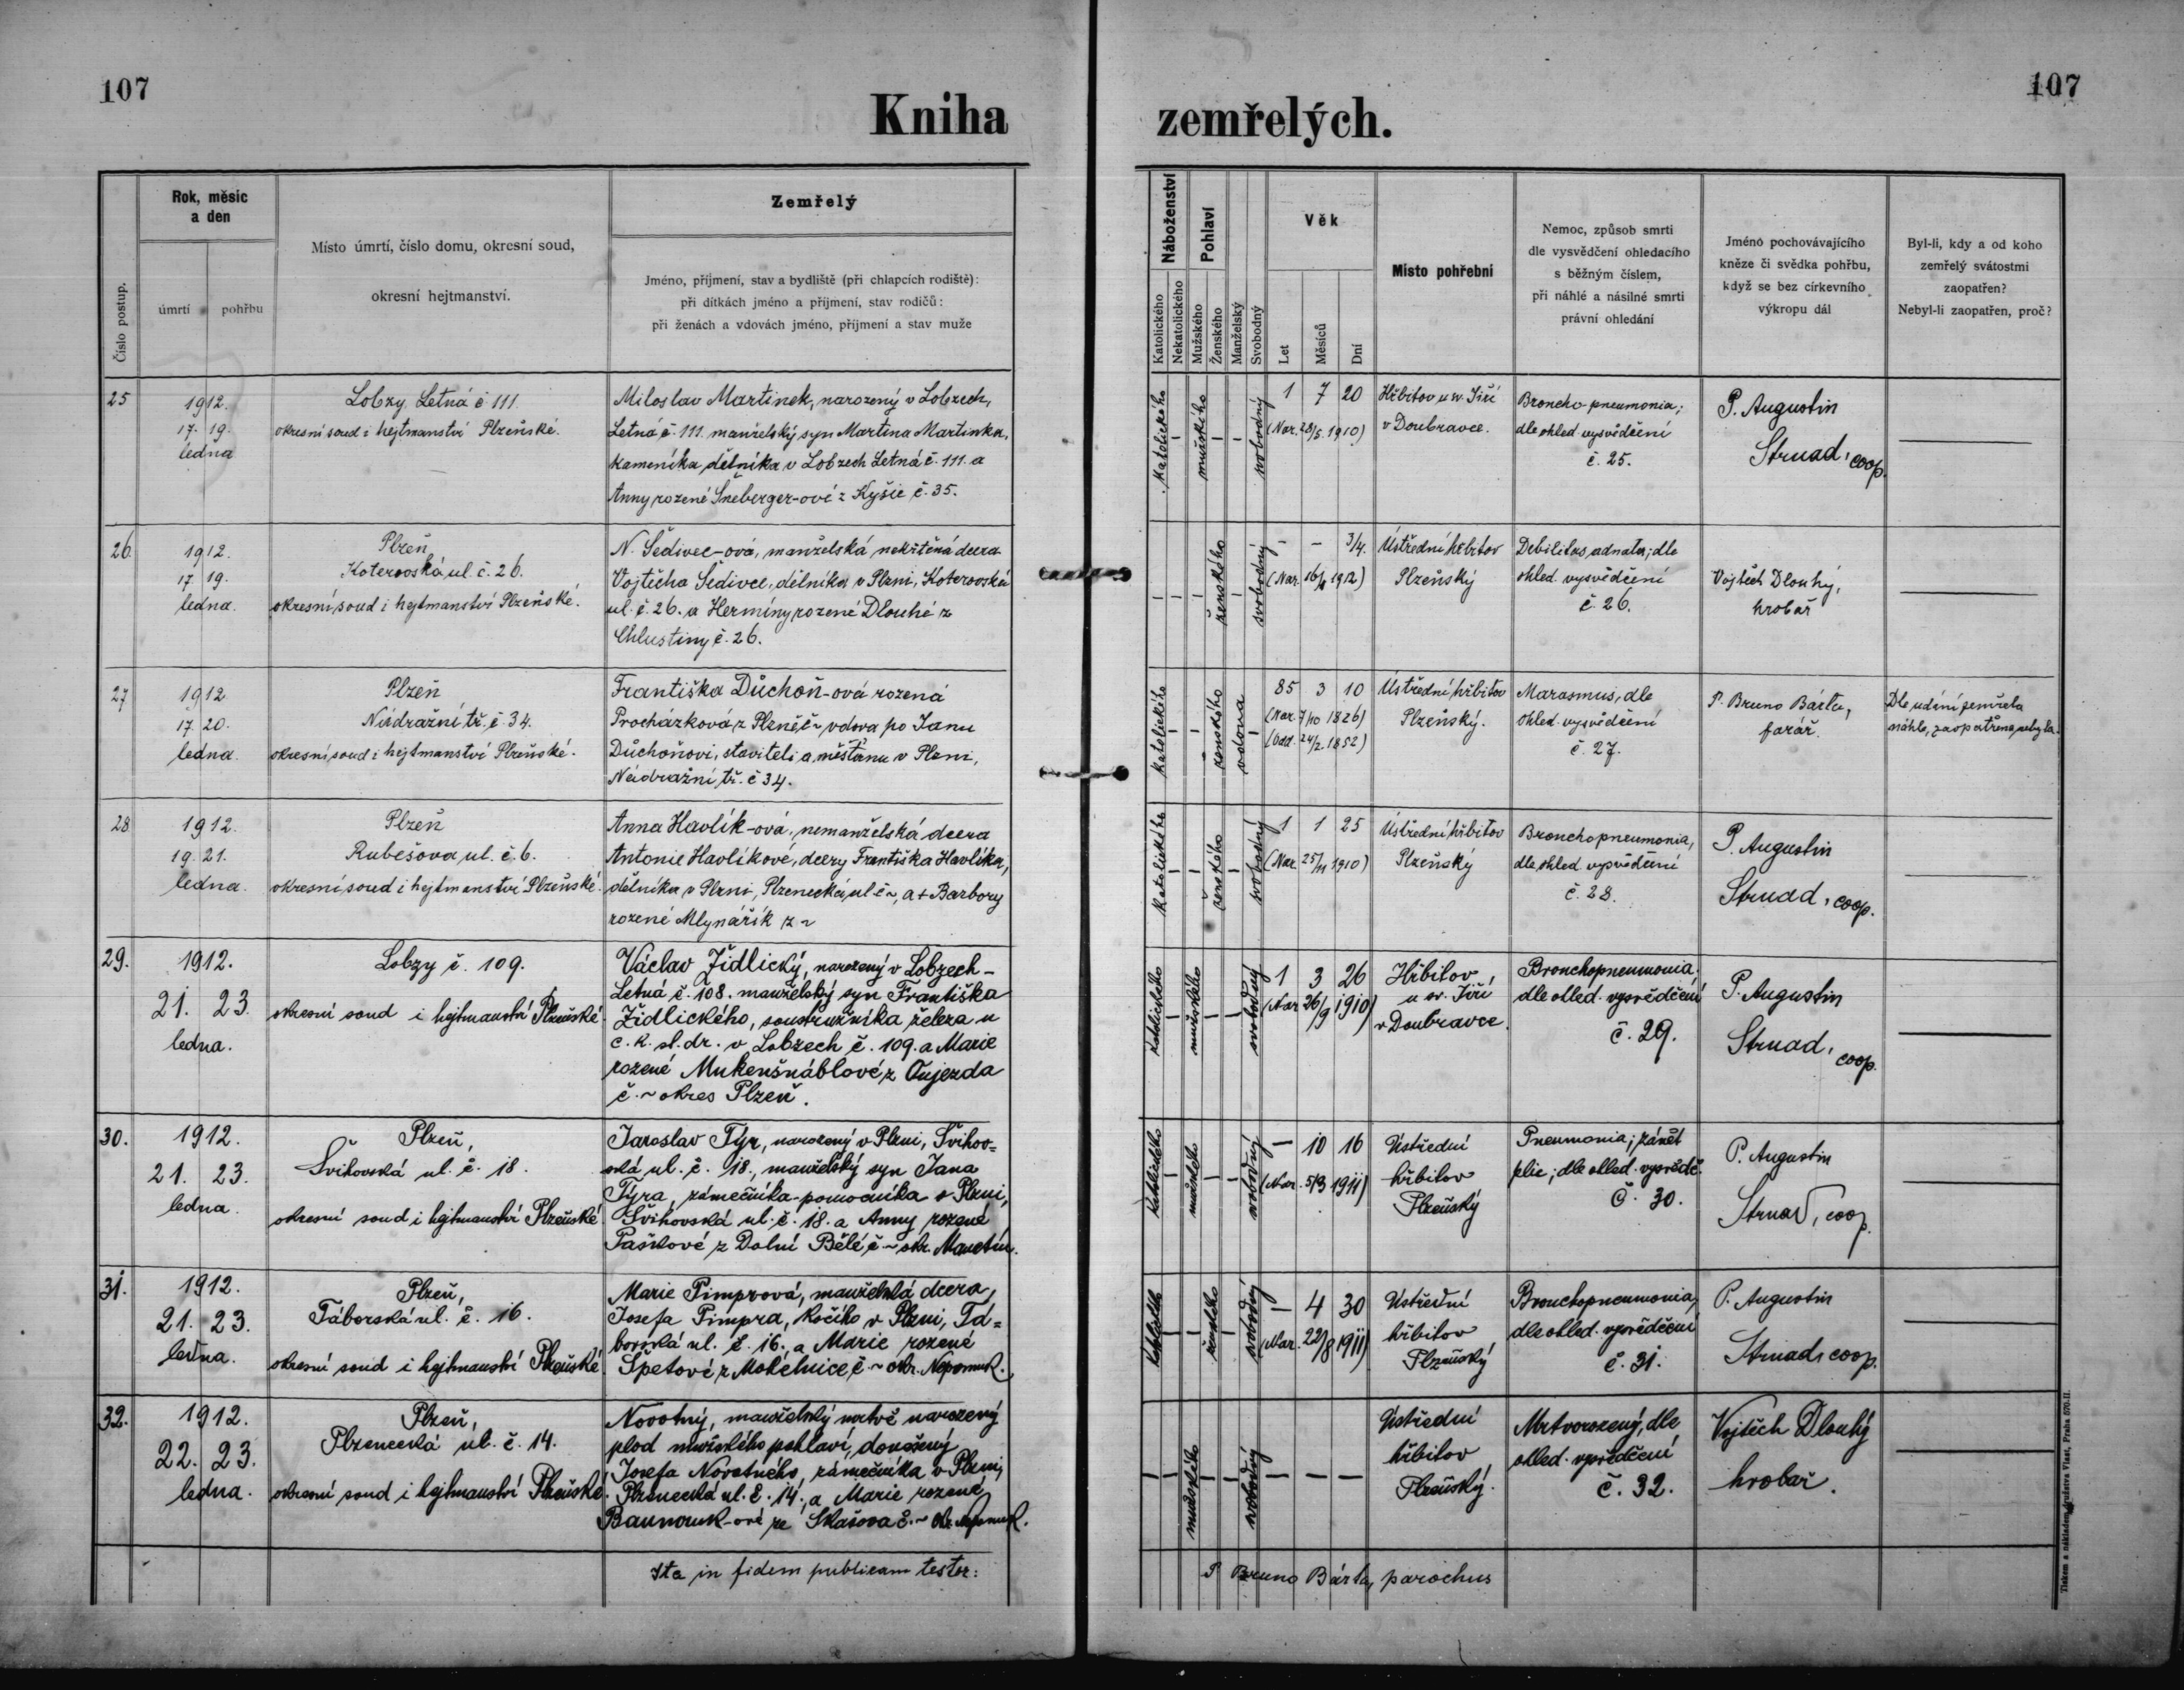 107
107
Kniha
zemřelých.
Číslo postup.
Rok, měsíc
a den
úmrtí
pohřbu
Místo úmrtí, číslo domu, okresní soud,
okresní hejtmanství.
Zemřelý
Jméno, příjmení, stav a bydliště (při chlapcích rodiště):
při dítkách jméno a příjmení, stav rodičů:
při ženách a vdovách jméno, příjmení a stav muže
Náboženství
Katolického
Nekatolického
Pohlaví
Mužského
Ženského
Manželský
Svobodný
Věk
Let
Měsíců
Dní
Místo pohřební
Nemoc, způsob smrti
dle vysvědčení ohledacího
s běžným číslem,
při náhlé a násilné smrti
právní ohledání
Jméno pochovávajícího
kněze či svědka pohřbu,
když se bez církevního
výkropu dál
Byl-li, kdy a od koho
zemřelý svátostmi
zaopatřen?
Nebyl-li zaopatřen, proč?
25
1912.
17. 19.
ledna
Lobzy, Letná č 111.
okresní soud i hejtmanství Plzeňské.
Miloslav Martinek, narozený v Lobzech,
Letná č. 111. manželský syn Martina Martinka,
kameníka, dělníka v Lobzech Letná č. 111. a
Anny rozené Šneberger-ové z Kyšic č. 35.
Katolického
-
mužského
-
-
svobodný
1 7 20
(Nar. 28/5. 1910)
Hřbitov u sv. Jiří
v Doubravce.
Broncho-pneumonia;
dle ohled. vysvědčení
č. 25.
P. Augustin
Strnad, coop.
26.
1912.
17. 19.
ledna.
Plzeň,
Koterovská ul. č. 26.
okresní soud i hejtmanství Plzeňské.
N. Šedivec-ová, manželská nekřtěná dcera
Vojtěcha Šedivce, dělníka v Plzni, Koterovská
ul. č. 26. a Herminy rozené Dlouhé z
Chlustiny č. 26.
- - -
ženského
-
svobodný
- - 3/4.
(Nar. 16/1 1912)
Ústřední hřbitov
Plzeňský
Debilitas adnata; dle
ohled. vysvědčení
č. 26.
Vojtěch Dlouhý,
hrobař
27
1912
17. 20.
ledna.
Plzeň
Nádražní tř. č. 34.
okresní soud i hejtmanství Plzeňské.
Františka Důchoň-ová rozená
Procházková z Plzně č ~ vdova po Janu
Důchoňovi, staviteli a měšťanu v Plzni,
Nádražní tř. č 34.
Katolického
- -
ženského
vdova
-
85 3 10
(Nar. 7/10 1826)
(Odd. 24/2. 1852)
Ústřední hřbitov
Plzeňský.
Marasmus, dle
ohled. vysvědčení
č. 27.
P. Bruno Bárta,
farář.
Dle udání zemřela
náhle, zaopatřena nebyla.
28
1912.
19. 21.
ledna.
Plzeň
Rubešova ul. č. 6.
okresní soud i hejtmanství Plzeňské.
Anna Havlík-ová, nemanželská dcera
Antonie Havlíkové, dcery Františka Havlíka,
dělníka v Plzni, Plzenecká ul č ~, a + Barbory
rozené Mlynářík z ~
Katolického
- -
ženského
-
svobodný
1 1 25
(Nar. 25/11 1910)
Ústřední hřbitov
Plzeňský
Bronchopneumonia,
dle ohled vysvědčení
č. 28.
P. Augustin
Strnad, coop.
29.
1912.
21. 23.
ledna.
Lobzy č. 109.
okresní soud i hejtmanství Plzeňské.
Václav Židlický, narozený v Lobzech-
Letná č. 108. manželský syn Františka
Židlického, soustružníka železa u
c. k. st. dr. v Lobzech č. 109. a Marie
rozené Mukenšnáblové z Oujezda
č. ~ okres Plzeň.
Katolického
-
mužského
- -
svobodný
1 3 26
(Nar 26/9 1910)
Hřbitov
u sv. Jiří
v Doubravce.
Bronchopneumonia;
dle ohled. vysvědčení
č. 29.
P. Augustin
Strnad, coop.
30.
1912.
21. 23.
ledna.
Plzeň,
Švihovská ul. č. 18.
okresní soud i hejtmanství Plzeňské
Jaroslav Týr, narozený v Plzni, Švihov=
ská ul. č. 18., manželský syn Jana
Týra, zámečníka-pomocníka v Plzni,
Švihovská ul. č. 18. a Anny rozené
Paškové z Dolní Bělé č ~ okr. Manetín.
Katolického
-
mužského
- -
svobodný
- 10 16
(Nar. 5/3 1911)
Ústřední
hřbitov
Plzeňský
Pneumonia; zánět
plic; dle ohled. vysvědč.
č. 30.
P. Augustin
Strnad, coop.
31.
1912.
21. 23.
ledna.
Plzeň,
Táborská ul. č. 16.
okresní soud i hejtmanství Plzeňské.
Marie Pimprová, manželská dcera
Josefa Pimpra, kočího v Plzni, Tá=
borská ul. č. 16., a Marie rozené
Špetové z Mohelnice č ~ okr. Nepomuk.
Katolického
- -
ženského
-
svobodný
- 4 30
(Nar. 22/8 1911)
Ústřední
hřbitov
Plzeňský
Bronchopneumonia,
dle ohled. vysvědčení
č. 31.
P. Augustin
Strnad, coop.
32.
1912.
22. 23.
ledna.
Plzeň,
Plzenecká ul. č. 14.
okresní soud i hejtmanství Plzeňské.
Novotný, manželský mrtvě narozený
plod mužského pohlaví, donošený
Josefa Novotného, zámečníka v Plzni,
Plzenecká ul. č. 14., a Marie rozené
-ové ze Skašova č. ~ okr. Nepomuk.
- -
mužského
- -
svobodný
- - -
Ústřední
hřbitov
Plzeňský.
Mrtvorozený, dle
ohled. vysvědčení
č. 32.
Vojtěch Dlouhý
hrobař.
Ita in fidem publicam testor:
P Bruno Bárta, parochus